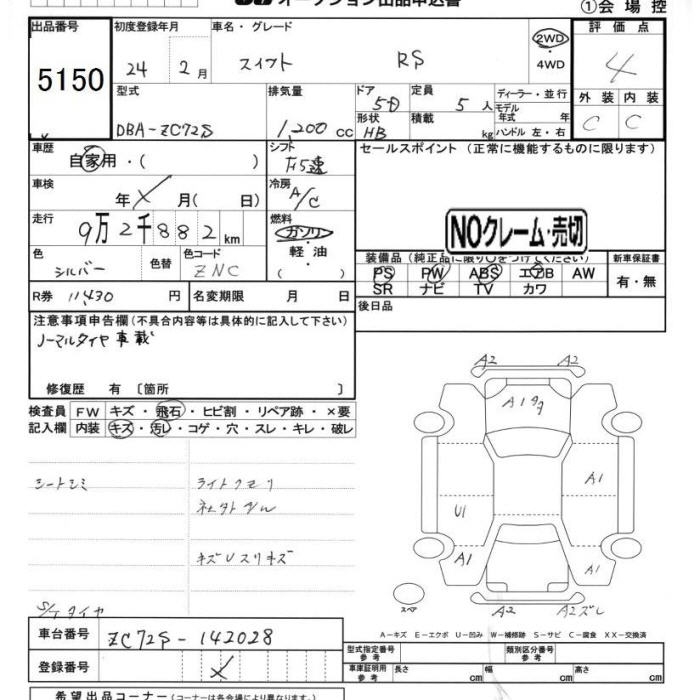 オークション出品申込書
①会場控
出品番号
5150
初度登録年月
24 年 2 月
車名・グレード
スイフト RS
2WD
・
4WD
評価点
4
外装 内装
C C
型式
DBA-ZC72S
排気量
1,200 cc
ドア
5D
形状
HB
定員
5 人
積載
kg
ディーラー・並行
モデル
年式 年
ハンドル 左・右
車歴
自家用・( )
シフト
F5速
セールスポイント (正常に機能するものに限ります)
車検
年 月( 日)
冷房
A/C
走行
9万2千882 km
燃料
ガソリン
・
軽油
( )
NOクレーム・売切
色
シルバー
色替
色コード
ZNC
装備品 (純正品に限り○をつけてください)
PS PW ABS エアB AW
SR ナビ TV カワ
新車保証書
有・無
R券 11430 円
名変期限 月 日
後日品
注意事項申告欄 (不具合内容等は具体的に記入して下さい)
ノーマルタイヤ車載
修復歴 有 〔箇所 〕
検査員
記入欄
FW キズ・飛石・ヒビ割・リペア跡・×要
内装 キズ・汚レ・コゲ・穴・スレ・キレ・破レ
シートシミ
ライトクモリ
キズUスリキズ
S/Tタイヤ
A2 A2
A1
A1
U1
A1 A1
スペア
A2 A2ズレ
A-キズ E-エクボ U-凹み W-補修跡 S-サビ C-腐食 XX-交換済
車台番号
ZC72S-142028
登録番号
型式指定番号
参考
類別区分番号
参考
車庫証明用
参考
長さ cm 幅 cm 高さ cm
希望出品コーナー (コーナーは各会場により異なります)